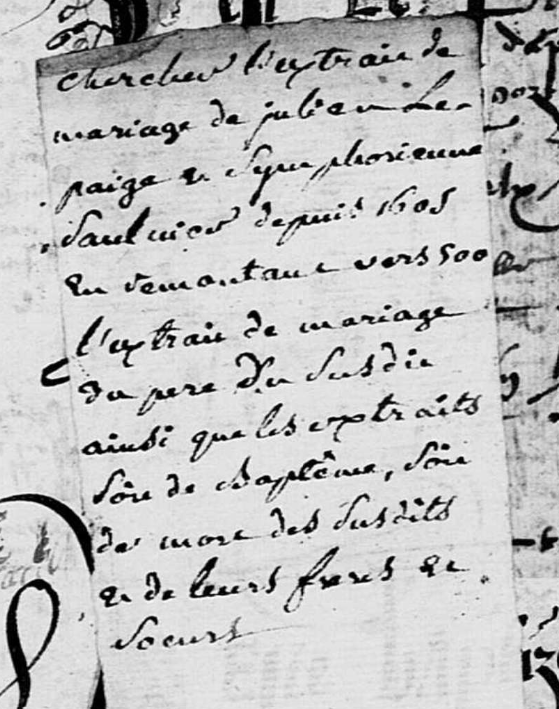 chercher l'extrait de
mariage de julien Le
paige et Symphorienne
Saulnier depuis 1605
En remontant vers 500
l'extrait de mariage
du pere Du Susdit
ainsi que les extraits
soit de Baptême, soit
de mort des susdits
et de leurs freres et
soeurs